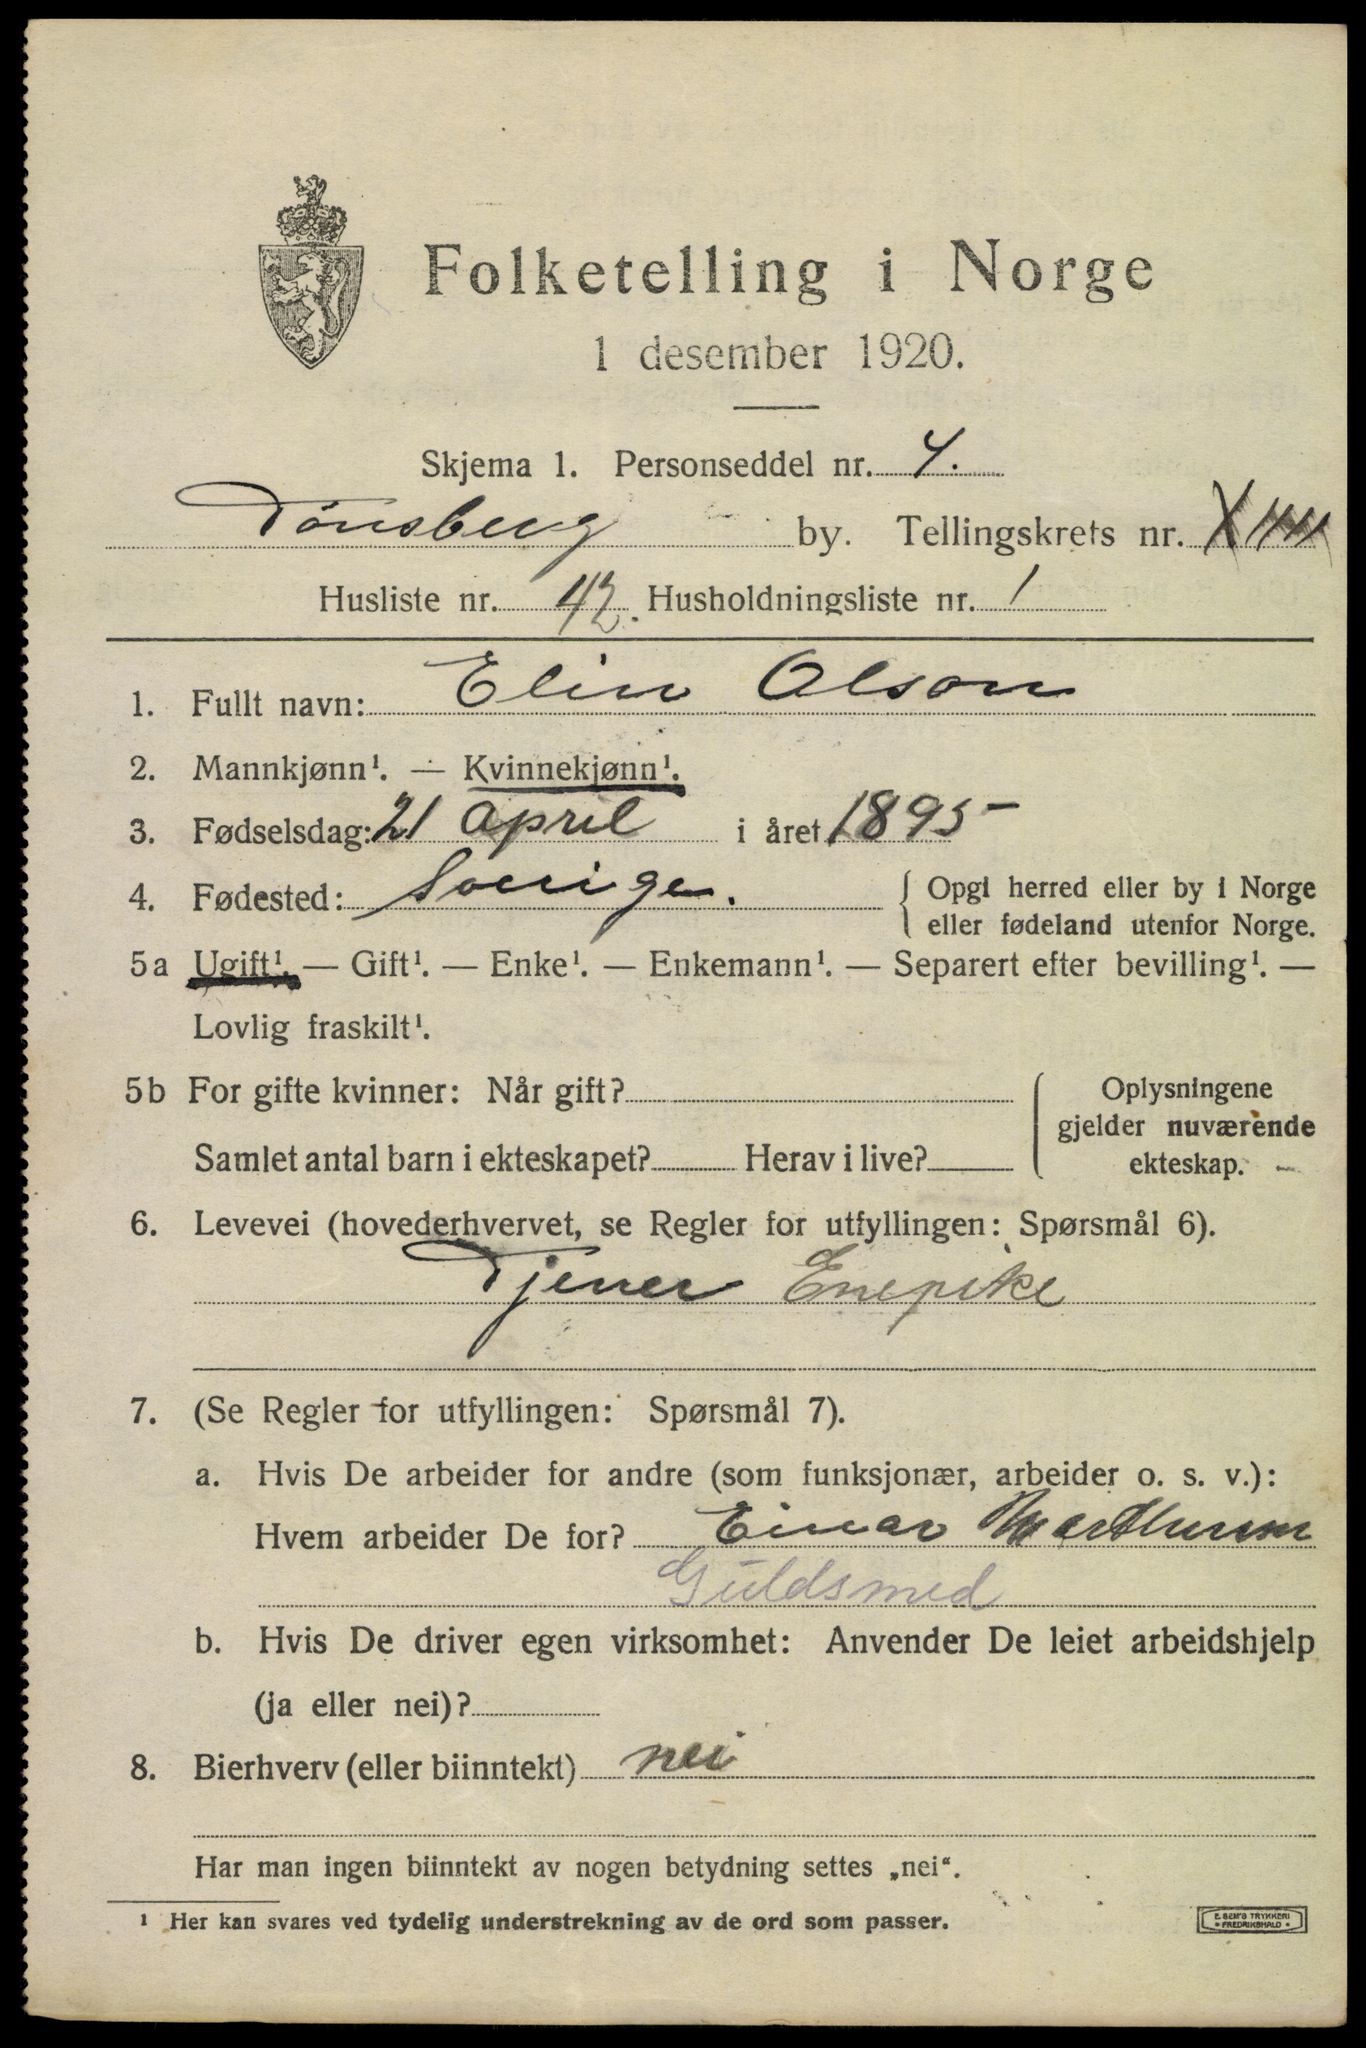 Folketelling i Norge
1 desember 1920.
Skjema 1. Personseddel nr. 4.
Tønsberg by. Tellingskrets nr.
Husliste nr. 42. Husholdningsliste nr. 1
1. Fullt navn: Elin Olson
2. Mannkjønn¹. — Kvinnekjønn¹.
3. Fødselsdag: 21 april i året 1895
4. Fødested: Sverige. { Opgi herred eller by i Norge
eller fødeland utenfor Norge.
5a Ugift¹. — Gift¹. — Enke¹. — Enkemann¹. — Separert efter bevilling¹. —
Lovlig fraskilt¹.
5b For gifte kvinner: Når gift? Oplysningene
gjelder nuværende
Samlet antal barn i ekteskapet? Herav i live? ekteskap.
6. Levevei (hovederhvervet, se Regler for utfyllingen: Spørsmål 6).
Tjener Enepike
7. (Se Regler for utfyllingen: Spørsmål 7).
a. Hvis De arbeider for andre (som funksjonær, arbeider o. s. v.):
Hvem arbeider De for? Einar
Guldsmed
b. Hvis De driver egen virksomhet: Anvender De leiet arbeidshjelp
(ja eller nei)?
8. Bierhverv (eller biinntekt) nei
Har man ingen biinntekt av nogen betydning settes „nei“.
¹ Her kan svares ved tydelig understrekning av de ord som passer.
E SEM'S TRYKKERI
* FREDRIKSHALD *